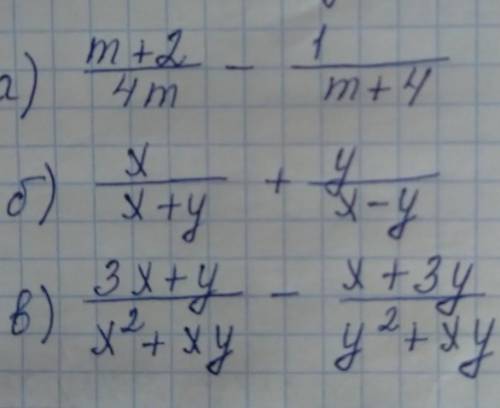 а) (m+2)/(4m) - 1/(m+4)
б) x/(x+y) + y/(x-y)
в) (3x+y)/(x²+xy) - (x+3y)/(y²+xy)